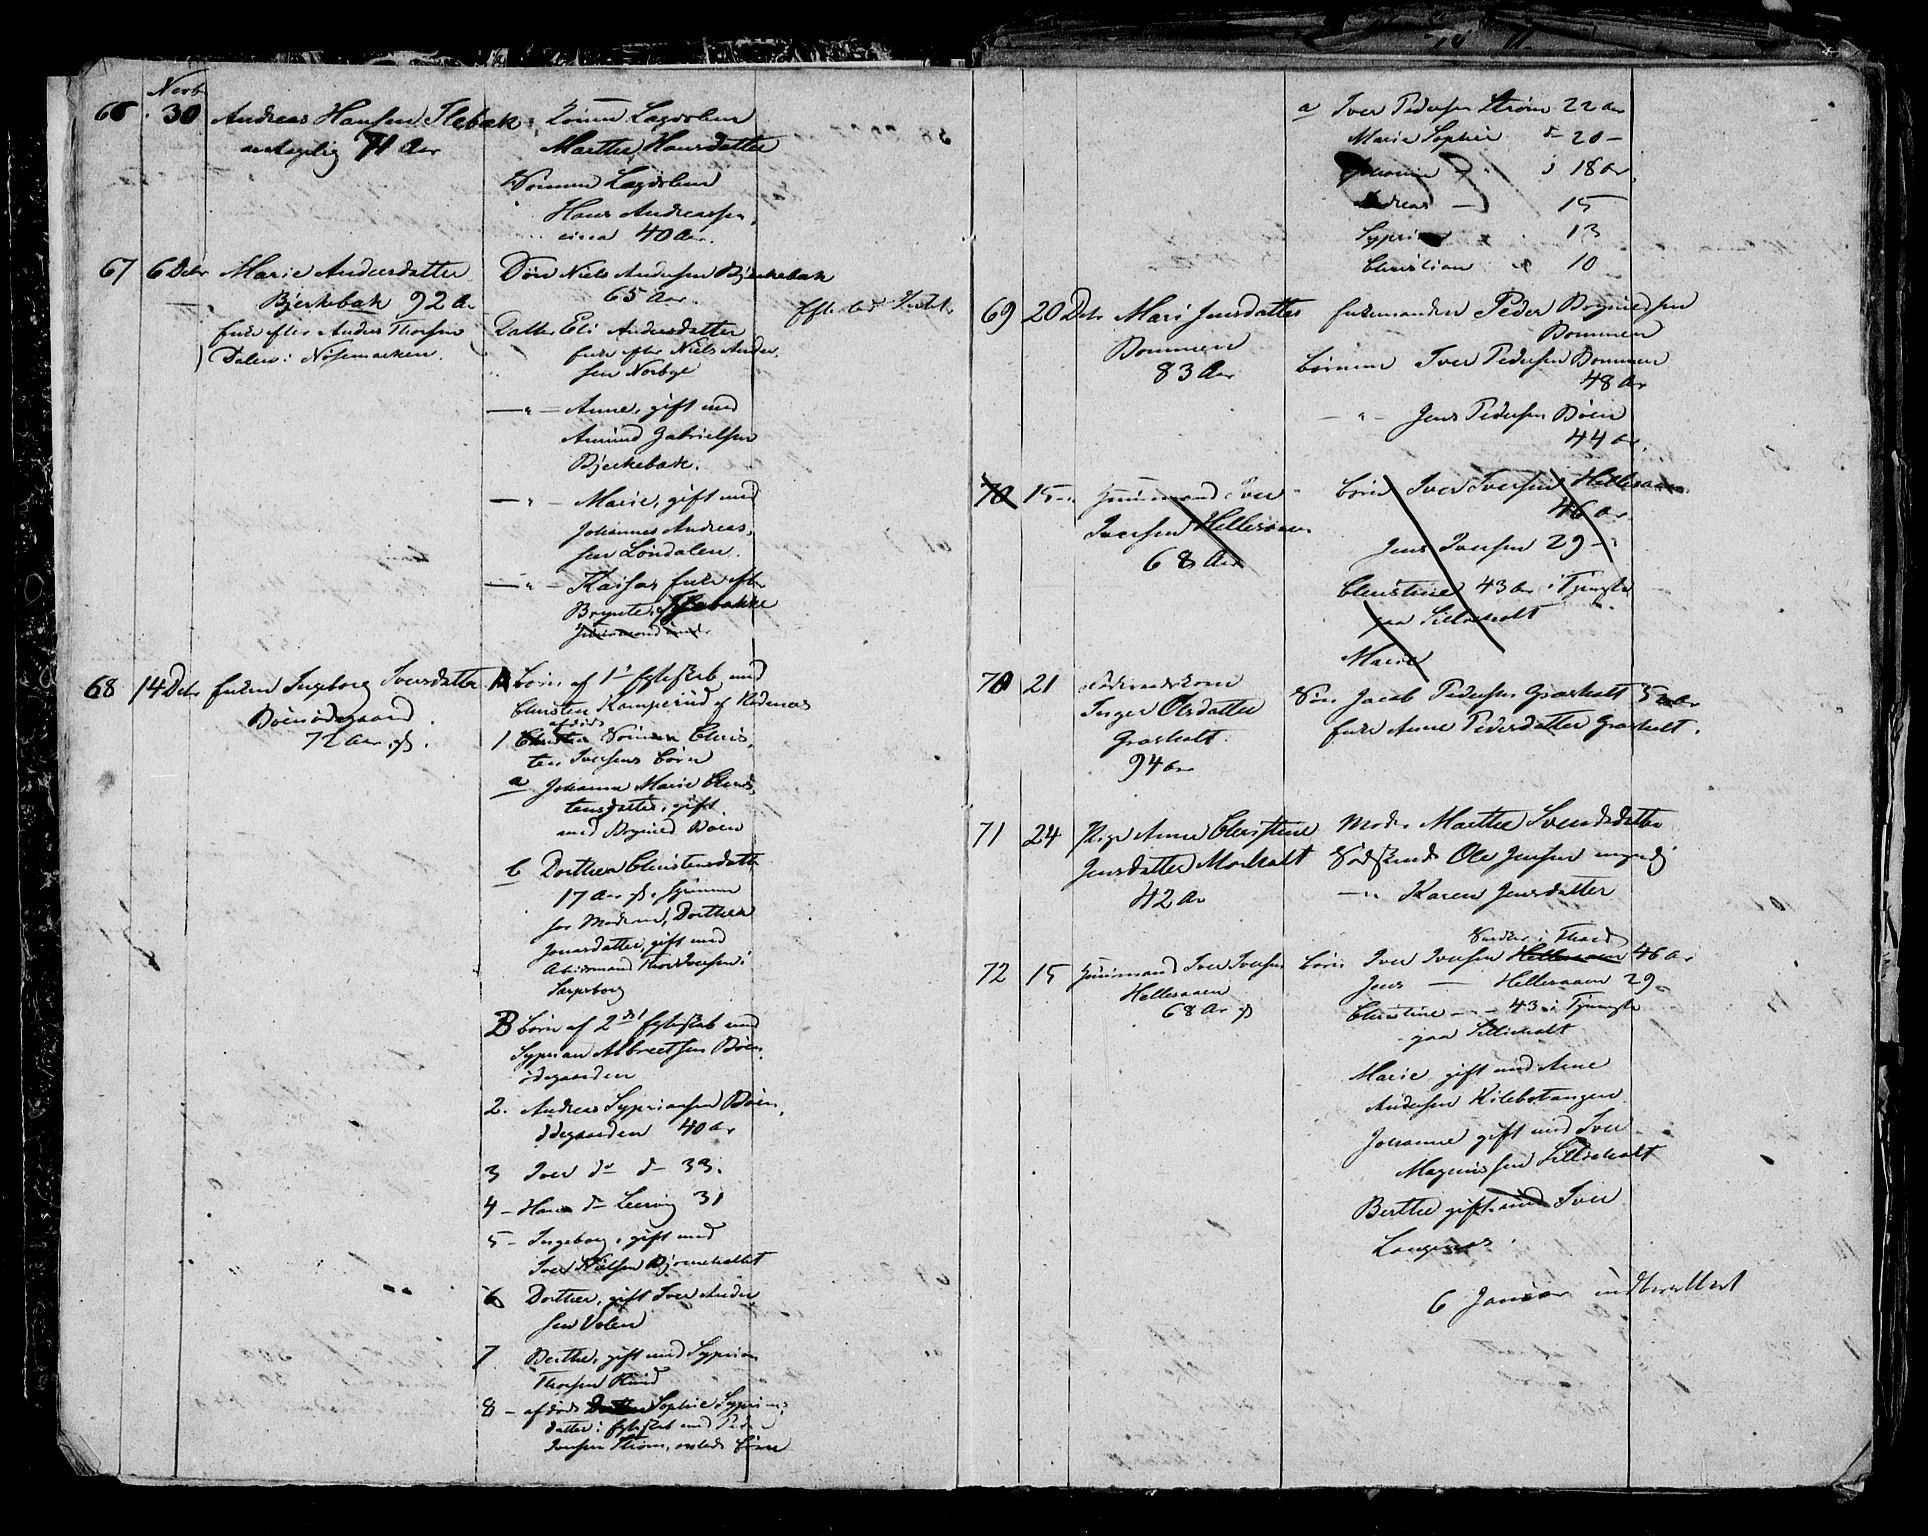 Novb
66 30 Andreas Hansen Slebak
antagelig 71 Aar
Konen Lagdslem
Marthe Hansdatter
Sønnen Lagdslem
Hans Andreassen
circa 40 Aar.
67 6 Debr Marie Andersdatter
Bjerkebak 92 A.
Enke efter Anders Thorsen
Dalen i Nøsemarken.
Søn Niels Andersen Bjerkebak
65 Aar.
Datter Eli Andersdatter
Enke efter Niels Ander-
sen Norbye
— " — Anne, gift med
Amund Gabrielsen
Bjerkebak.
— " — Marie, gift med
Johannes Andreas-
sen Løndalen.
— " — Kaisas Enke efter
Brynte
Huusmand
68 14 Debr Enken Ingeborg Iversdatter
Bøenødegaard
72 Aar gl.
A Børn af 1ste Egteskab med
Christen Kamperud af Rødenæs
afdøde
1 Sønnen Chris-
ten Iversens Børn
a Johanne Marie Chris-
tensdatter, gift
med Brynild Bøen
b Dorthea Christensdatter
17 Aar gl. hjemme
hos Moderen, Dorthea
Jonasdatter, gift med
Arbeidsmand Thor Iversen i
Sarpsborg
B Børn af 2det Egteskab med
Syprian Albretsen Bøen-
ødegaarden
2. Andreas Sypriansen Bøen-
ødegaarden 40 Aar
3 Iver do — d — 33.
4 — Hans d — Leering 31
5 — Ingeborg, gift med
Iver Nielsen Bjørnehallet
6 Dorthea, gift Iver Ander
sen Volen
7 Berthe, gift med Syprian
Thorsen Ruud
8 — afdøde Sophie Syprians-
datter i Egteskab med Peder
Iversen Strøm, efterl. Børn
a Iver Pedersen Strøm 22 Aar
Marie Sophie d — 20 —
Johanne 18 Aar
Andreas — 15
Syprian 13
Christian 10
69 20 Debr Mari Jensdatter
Bommen
83 Aar
Enkemanden Peder Brynildsen
Bommen
Børnene Iver Pedersen Bommen
48 Aar
— " — Jens Pedersen Bøen
44 Aar
70 15 — Huusmand Iver
Iversen Hellesaaen
68 Aar
Børn Iver Iversen Hellesaaen
46 Aar
Jens Iversen 29 —
Christine 43 Aar i Tjeneste
paa Sillebholt
Marie
70 21
Inger Olsdatter
Grasholt.
94 Aar
Søn Jacob Pedersen Grasholt 50 Aar
Enke Anne Pedersdatter Grasholt.
71 24 Pige Anne Christine
Jensdatter Morholt
42 Aar
Moder Marthe Svendsdatter
Sødskende Ole Jensen myndig
— " Karen Jensdatter
72 15 Huusmand Iver Iversen
Hellesaaen
68 Aar gl
Snedker i Thiard
Børn Iver Iversen Hellesaaen 46 Aar
Jens — Hellesaaen 29
Christine — " — 43 i Tjeneste
paa Sillebholt
Marie gift med Arne
Andersen Kilebotangen
Johanne gift med Iver
Magnussen Sillebholt
Berthe gift med Iver
Langenæs.
6 Januar indberettet